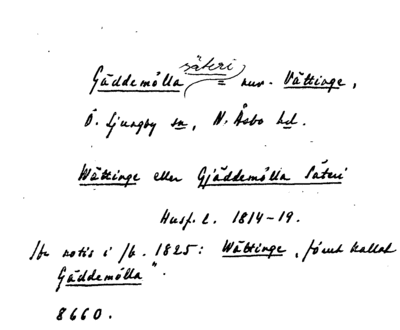 säteri
Gäddemölla = nuv. Vättinge,
Ö. Ljungby sn, N. Åsbo hd.
Wättinge eller Gjäddemölla Säteri
Husf. l. 1814-19.
notis i fb. 1825: Wättinge, förut kallat
Gäddemölla".
8660.